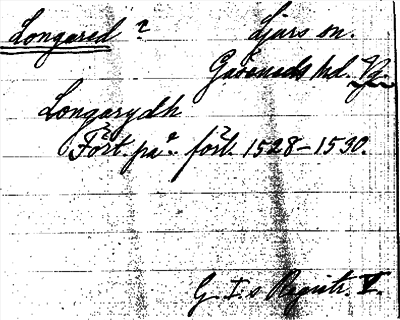 Longared ? Ljurs sn.
Gäseneds hd. Vg.
Longarydh
Fört. på? förl. 1528-1530.
G. I:s Registr. V.